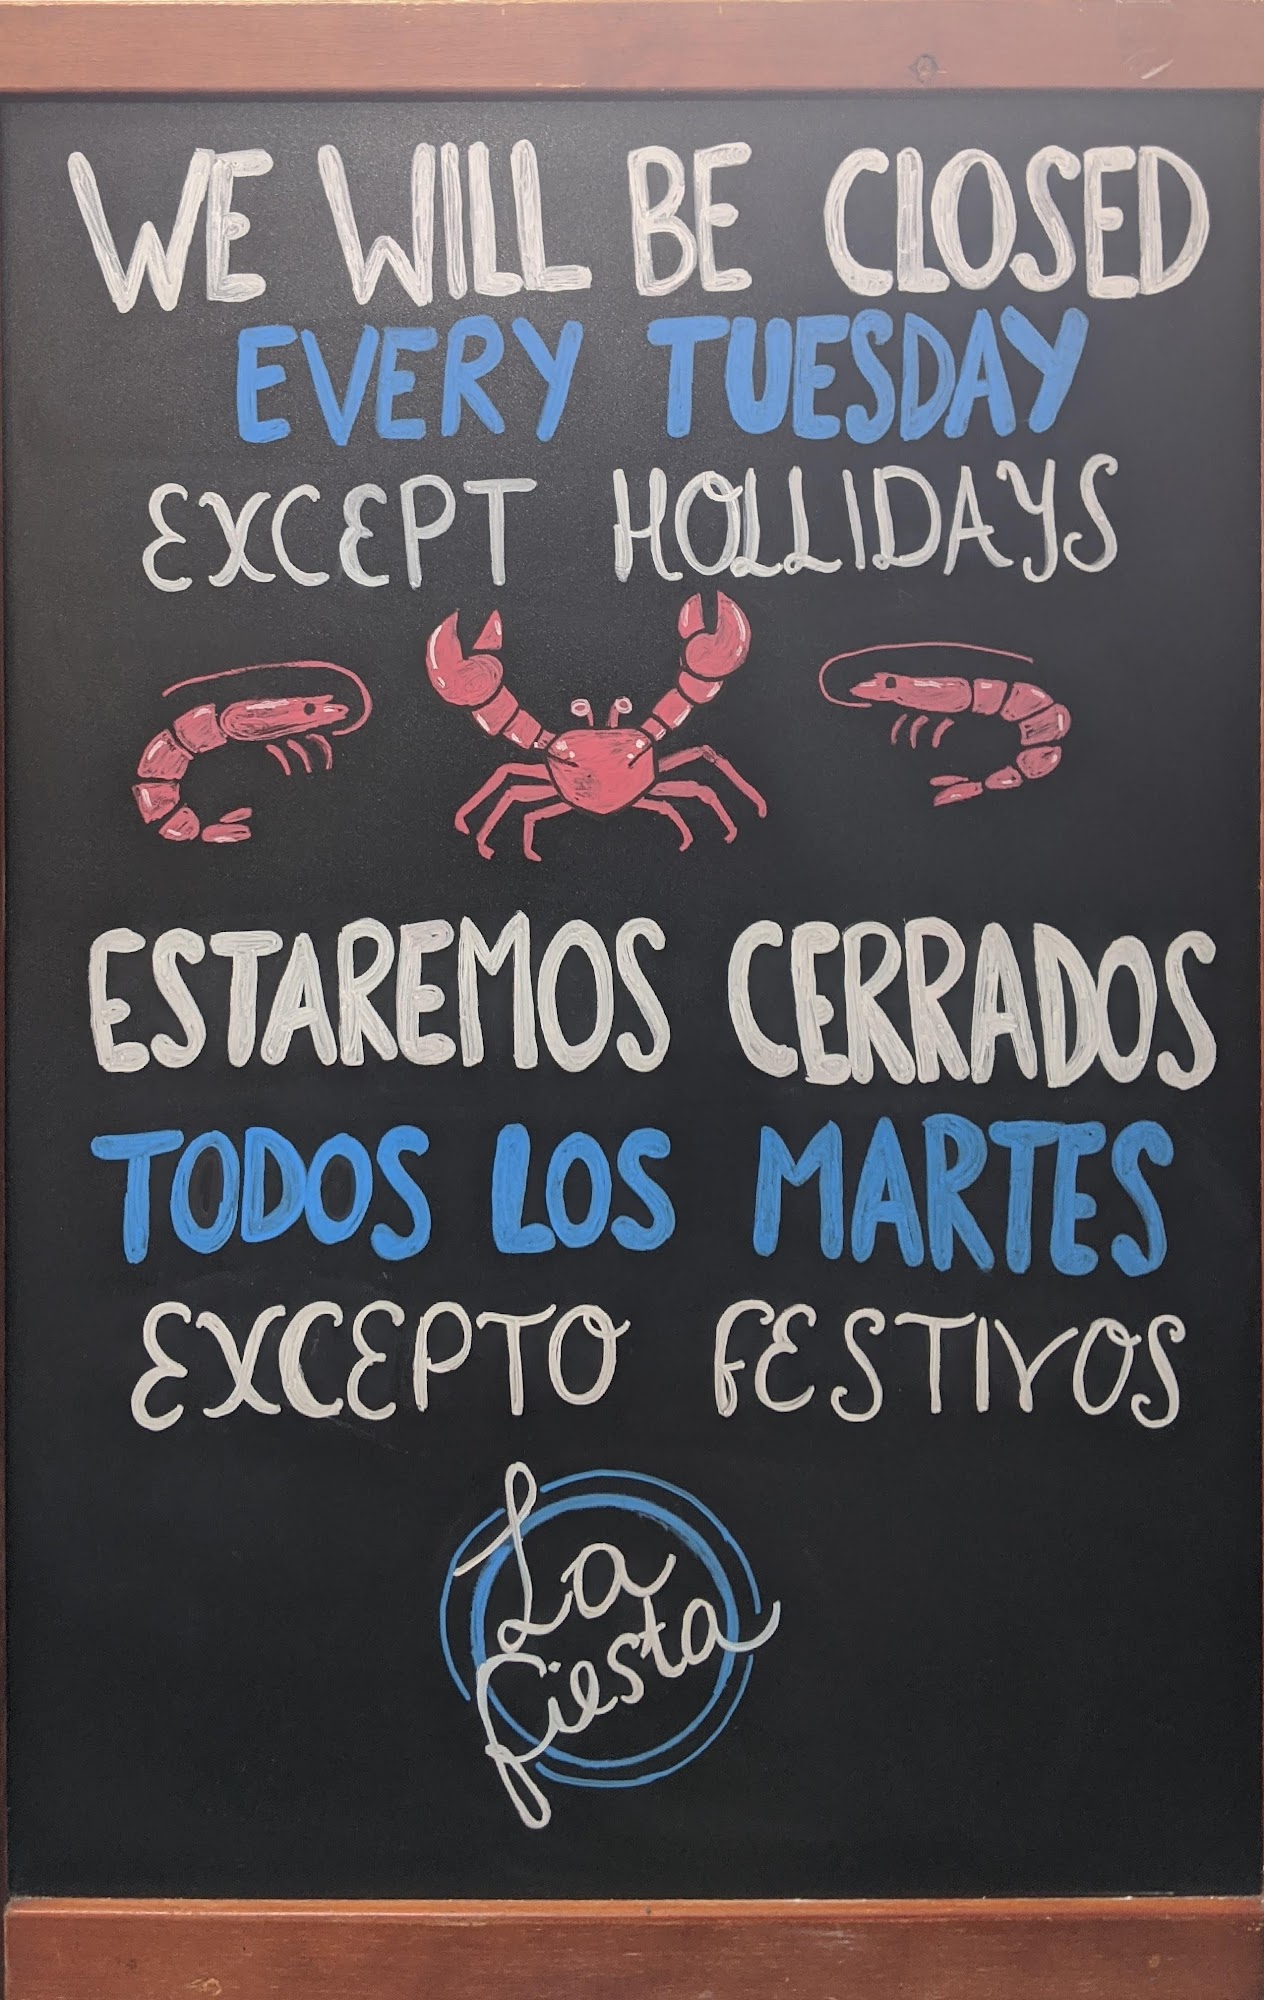 WE WILL BE CLOSED
EVERY TUESDAY
EXCEPT HOLLIDAYS
ESTAREMOS CERRADOS
TODOS LOS MARTES
EXCEPTO FESTIVOS
La
fiesta